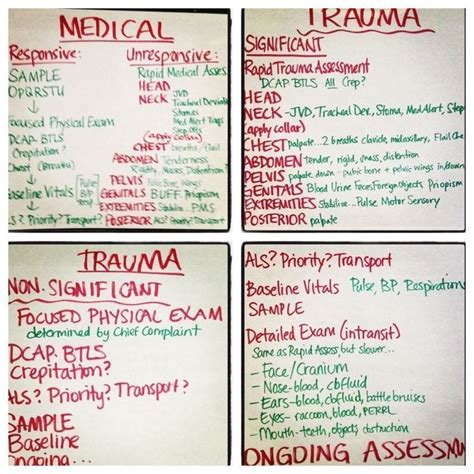 MEDICAL
Responsive:
SAMPLE
OPQRSTU
Focused Physical Exam
DCAP-BTLS
Crepitation?
Chest (Breaths)
Baseline Vitals
Pulse
BP
Resp
ALS? Priority? Transport?
Unresponsive:
Rapid Medical Asses
HEAD
NECK JVD
Tracheal Deviation
Stomas
Med Alert Tags
(apply collar)
CHEST breaths/flail
ABDOMEN Tenderness
Rigidity, Masses, Distention
PELVIS Stabilize Wings
GENITALS BUFF Priapism
EXTREMITIES Stabilize PMS
POSTERIOR ALS? Priority? Transport
TRAUMA
SIGNIFICANT
Rapid Trauma Assessment
DCAP-BTLS All Crep?
HEAD
NECK -JVD, Tracheal Dev., Stoma, Med Alert, Step
(apply collar)
CHEST palpate...2 breaths clavicle, midaxillary, Flail Che
ABDOMEN tender, rigid, mass, distention
PELVIS palpate down - pubic bone + pelvic wings in/down
GENITALS Blood Urine Feces Foreign Objects Priopism
EXTREMITIES Stabilize... Pulse Motor Sensory
POSTERIOR palpate
TRAUMA
NON. SIGNIFICANT
FOCUSED PHYSICAL EXAM
determined by Chief Complaint
DCAP-BTLS
Crepitation?
ALS? Priority? Transport?
SAMPLE
Baseline
Ongoing...
ALS? Priority? Transport
Baseline Vitals Pulse, BP, Respiration
SAMPLE
Detailed Exam (intransit)
Same as Rapid Assess but slower...
- Face/Cranium
- Nose-blood, cbfluid
- Ears-blood, cbfluid, battle bruises
- Eyes- raccoon, blood, PERRL
- Mouth-teeth, objects obstruction
ONGOING ASSESSM